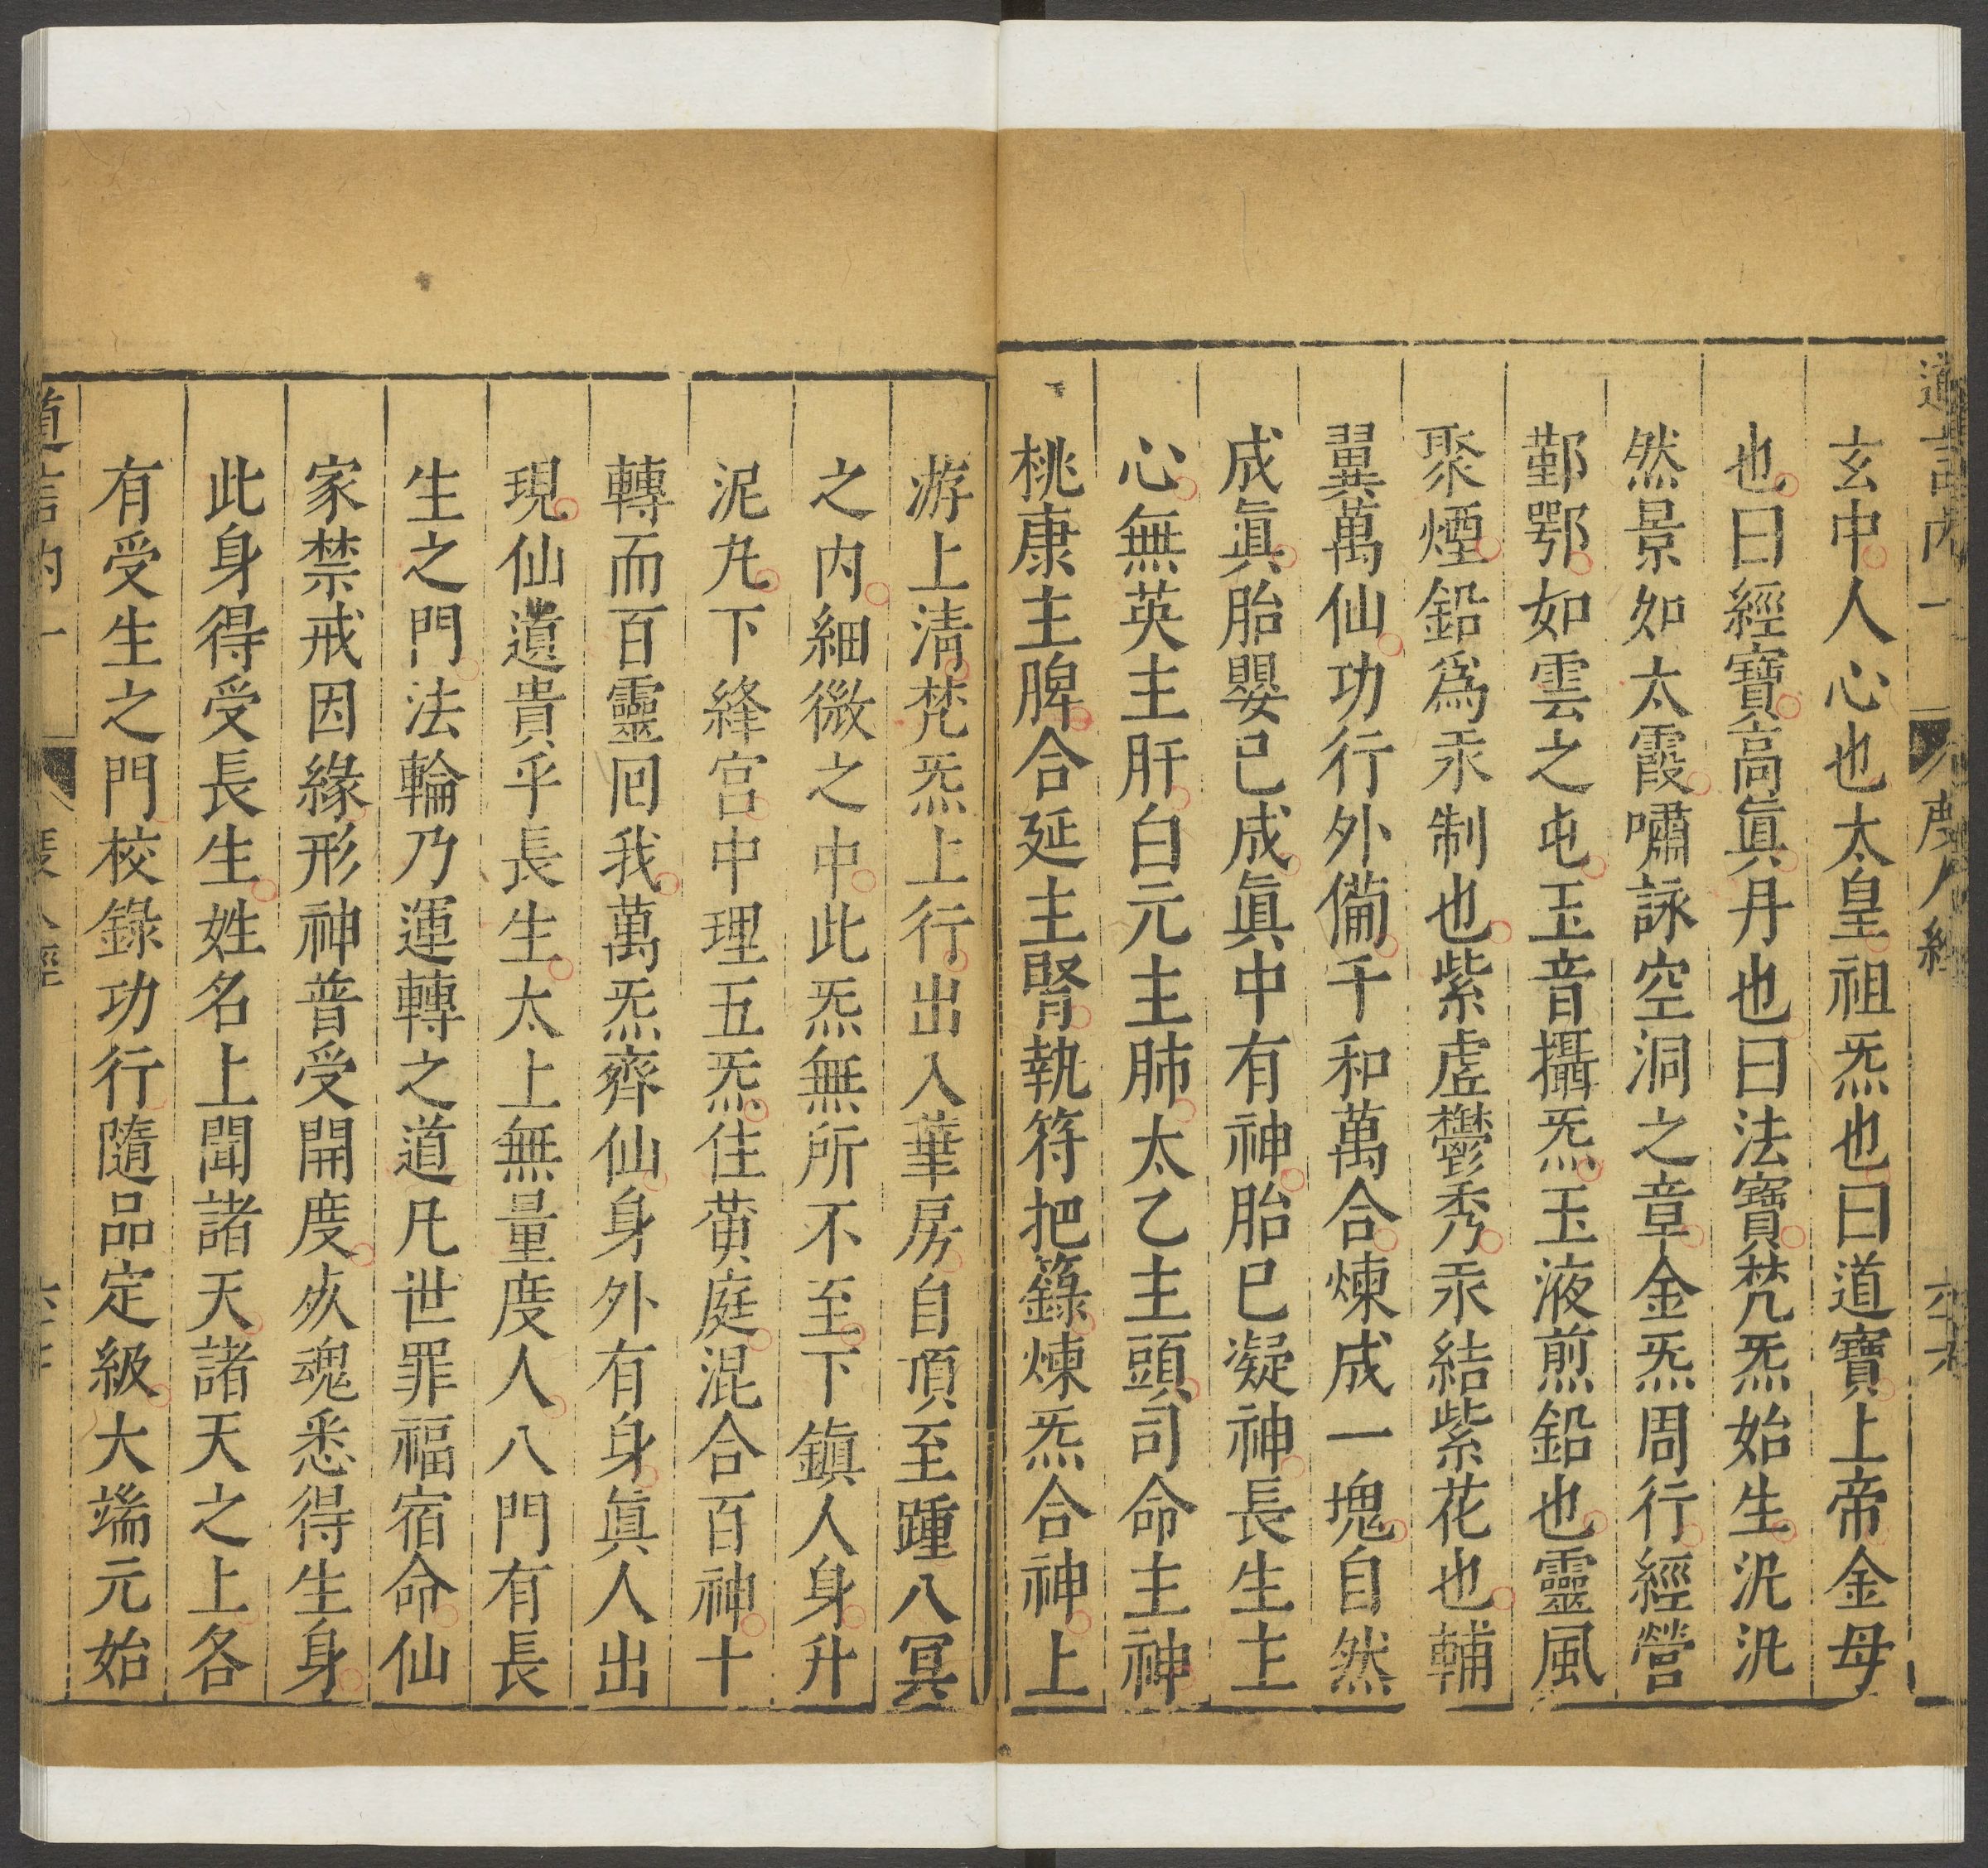 道言內一
度人經
玄中人心也太皇祖炁也曰道寶上帝金母
也曰經寶高眞丹也曰法寶梵炁始生汎汎
然景如太霞嘯詠空洞之章金炁周行經營
鄞鄂如雲之屯玉音攝炁玉液煎鉛也靈風
聚煙鉛爲汞制也紫虛鬱秀汞結紫花也輔
翼萬仙功行外備千和萬合煉成一塊自然
成眞胎嬰已成眞中有神胎已凝神長生主
心無英主肝白元主肺太乙主頭司命主神
桃康主脾合延主腎執符把籙煉炁合神上
游上清梵炁上行出入華房自頂至踵八冥
之内細微之中此炁無所不至下鎮人身升
泥丸下絳宫中理五炁住黄庭混合百神十
轉而百靈囘我萬炁齊仙身外有身眞人出
現仙道貴乎長生太上無量度人八門有長
生之門法輪乃運轉之道凡世罪福宿命仙
家禁戒因緣形神普受開度疚魂悉得生身
此身得受長生姓名上聞諸天諸天之上各
有受生之門校錄功行隨品定級大端元始